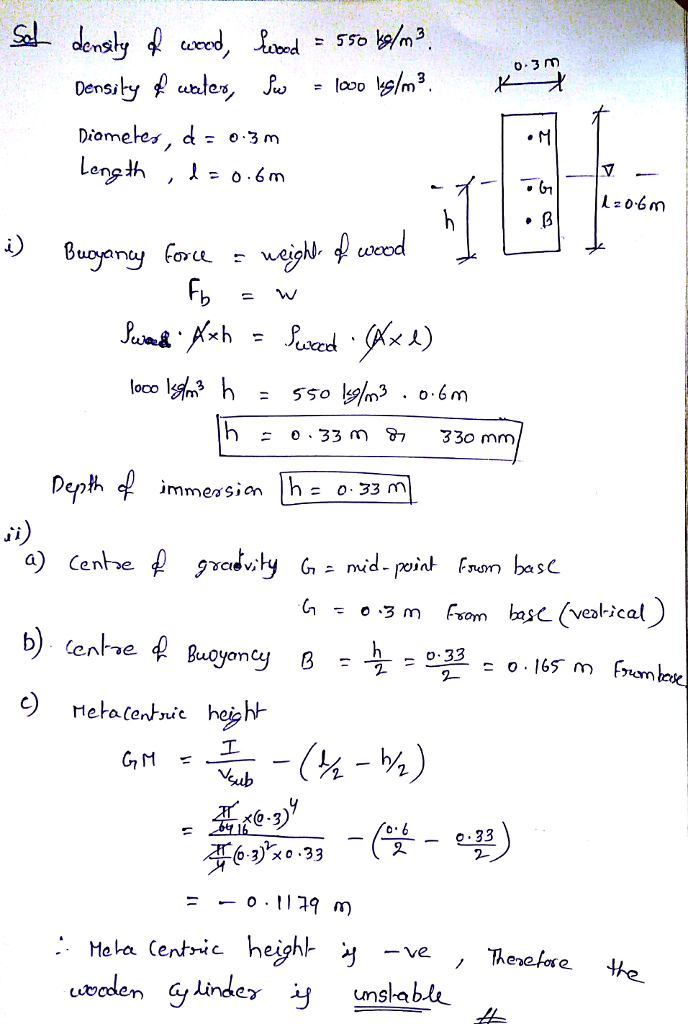 Sol density of wood, ρwood = 550 kg/m³.
Density of water, ρw = 1000 kg/m³.
0.3 m
Diameter, d = 0.3 m
Length, l = 0.6 m
• M
• G
• B
h
l = 0.6m
i) Buoyancy force = weight of wood
Fb = w
A×h = ρwood · (A×l)
1000 kg/m³ h = 550 kg/m³ . 0.6m
h = 0.33 m or 330 mm
Depth of immersion h = 0.33 m
ii)
a) Centre of gravity G = mid-point from base
G = 0.3 m from base (vertical)
b). Centre of Buoyancy B = h/2 = 0.33/2 = 0.165 m from base
c) Metacentric height
GM = I/Vsub - (l/2 - h/2)
= π/64 16 ×(0.3)⁴ / π/4 (0.3)²×0.33 - (0.6/2 - 0.33/2)
= - 0.1179 m
∴ Meta Centric height is -ve, Therefore the
wooden cylinder is unstable